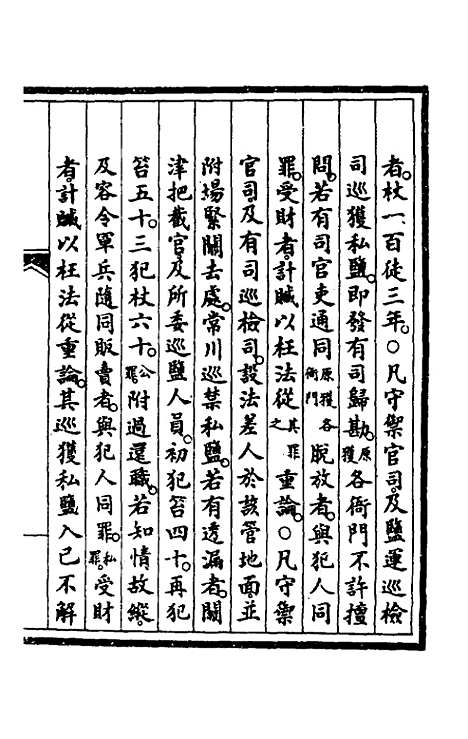 者。杖一百徒三年。○凡守禦官司。及鹽運巡檢
司巡獲私鹽。即發有司歸勘。原獲各衙門不許擅
問。若有司官吏通同原獲各衙門脫放者。與犯人同
罪。受財者。計贓以枉法從其罪之重論。○凡守禦
官司。及有司巡檢司。設法差人於該管地面。並
附場緊關去處。常川巡禁私鹽。若有透漏者。關
津把截官。及所委巡鹽人員。初犯笞四十。再犯
笞五十。三犯杖六十。公罪。附過還職。若知情故縱。
及容令軍兵隨同販賣者。與犯人同罪。私罪。受財
者。計贓以枉法從重論。其巡獲私鹽入己不解